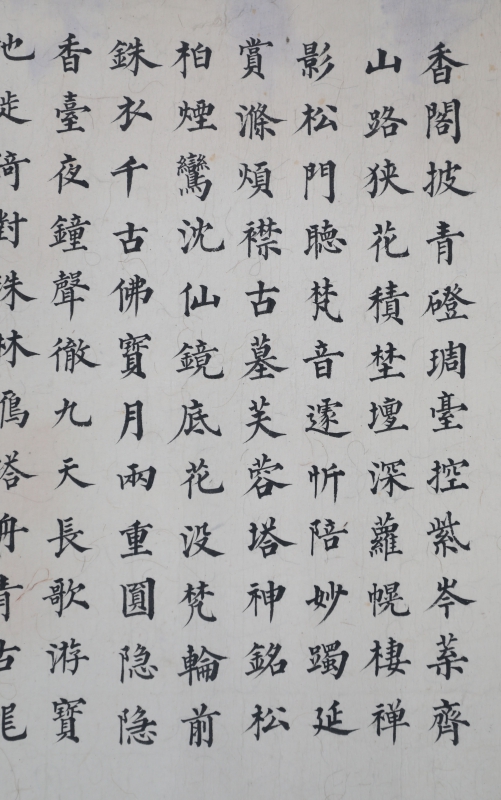 香閣披青磴琱臺控紫岑葉齊
山路狭花積埜壇深蘿幌棲禅
影松門聽梵音遽忻陪妙躅延
賞滌煩襟古墓芙蓉塔神銘松
柏煙鸞沈仙鏡底花没梵輪前
銖衣千古佛寶月兩重圓隐隐
香臺夜鐘聲徹九天長歌游寶
地徙倚對珠林鴈塔丹青古龍